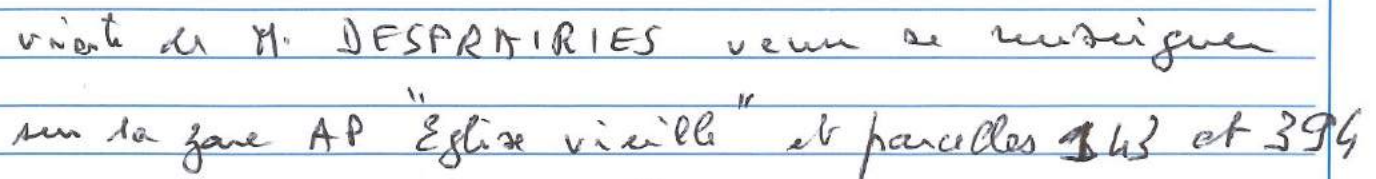 visite de M. DESPRAIRIES venu se renseigner
sur la zone AP "Eglise vieille" et parcelles 143 et 394